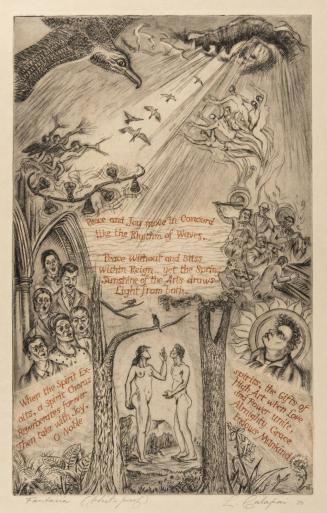 Peace and Joy move in Concord
like the Rhythm of Waves...
Peace Without and Bliss
Within Reign... yet the Spring
Sunshine of the Arts draws
Light from both.
When the Spirit Ex-
alts, a Spirit Chorus
Reverberates Forever.
Then take with Joy,
O Noble
Spirits, the Gifts of
High Art when Love
and Power Unite,
Almighty Grace
Rejoice Mankind.
Fantasia (Artist's proof)
L. Calapai